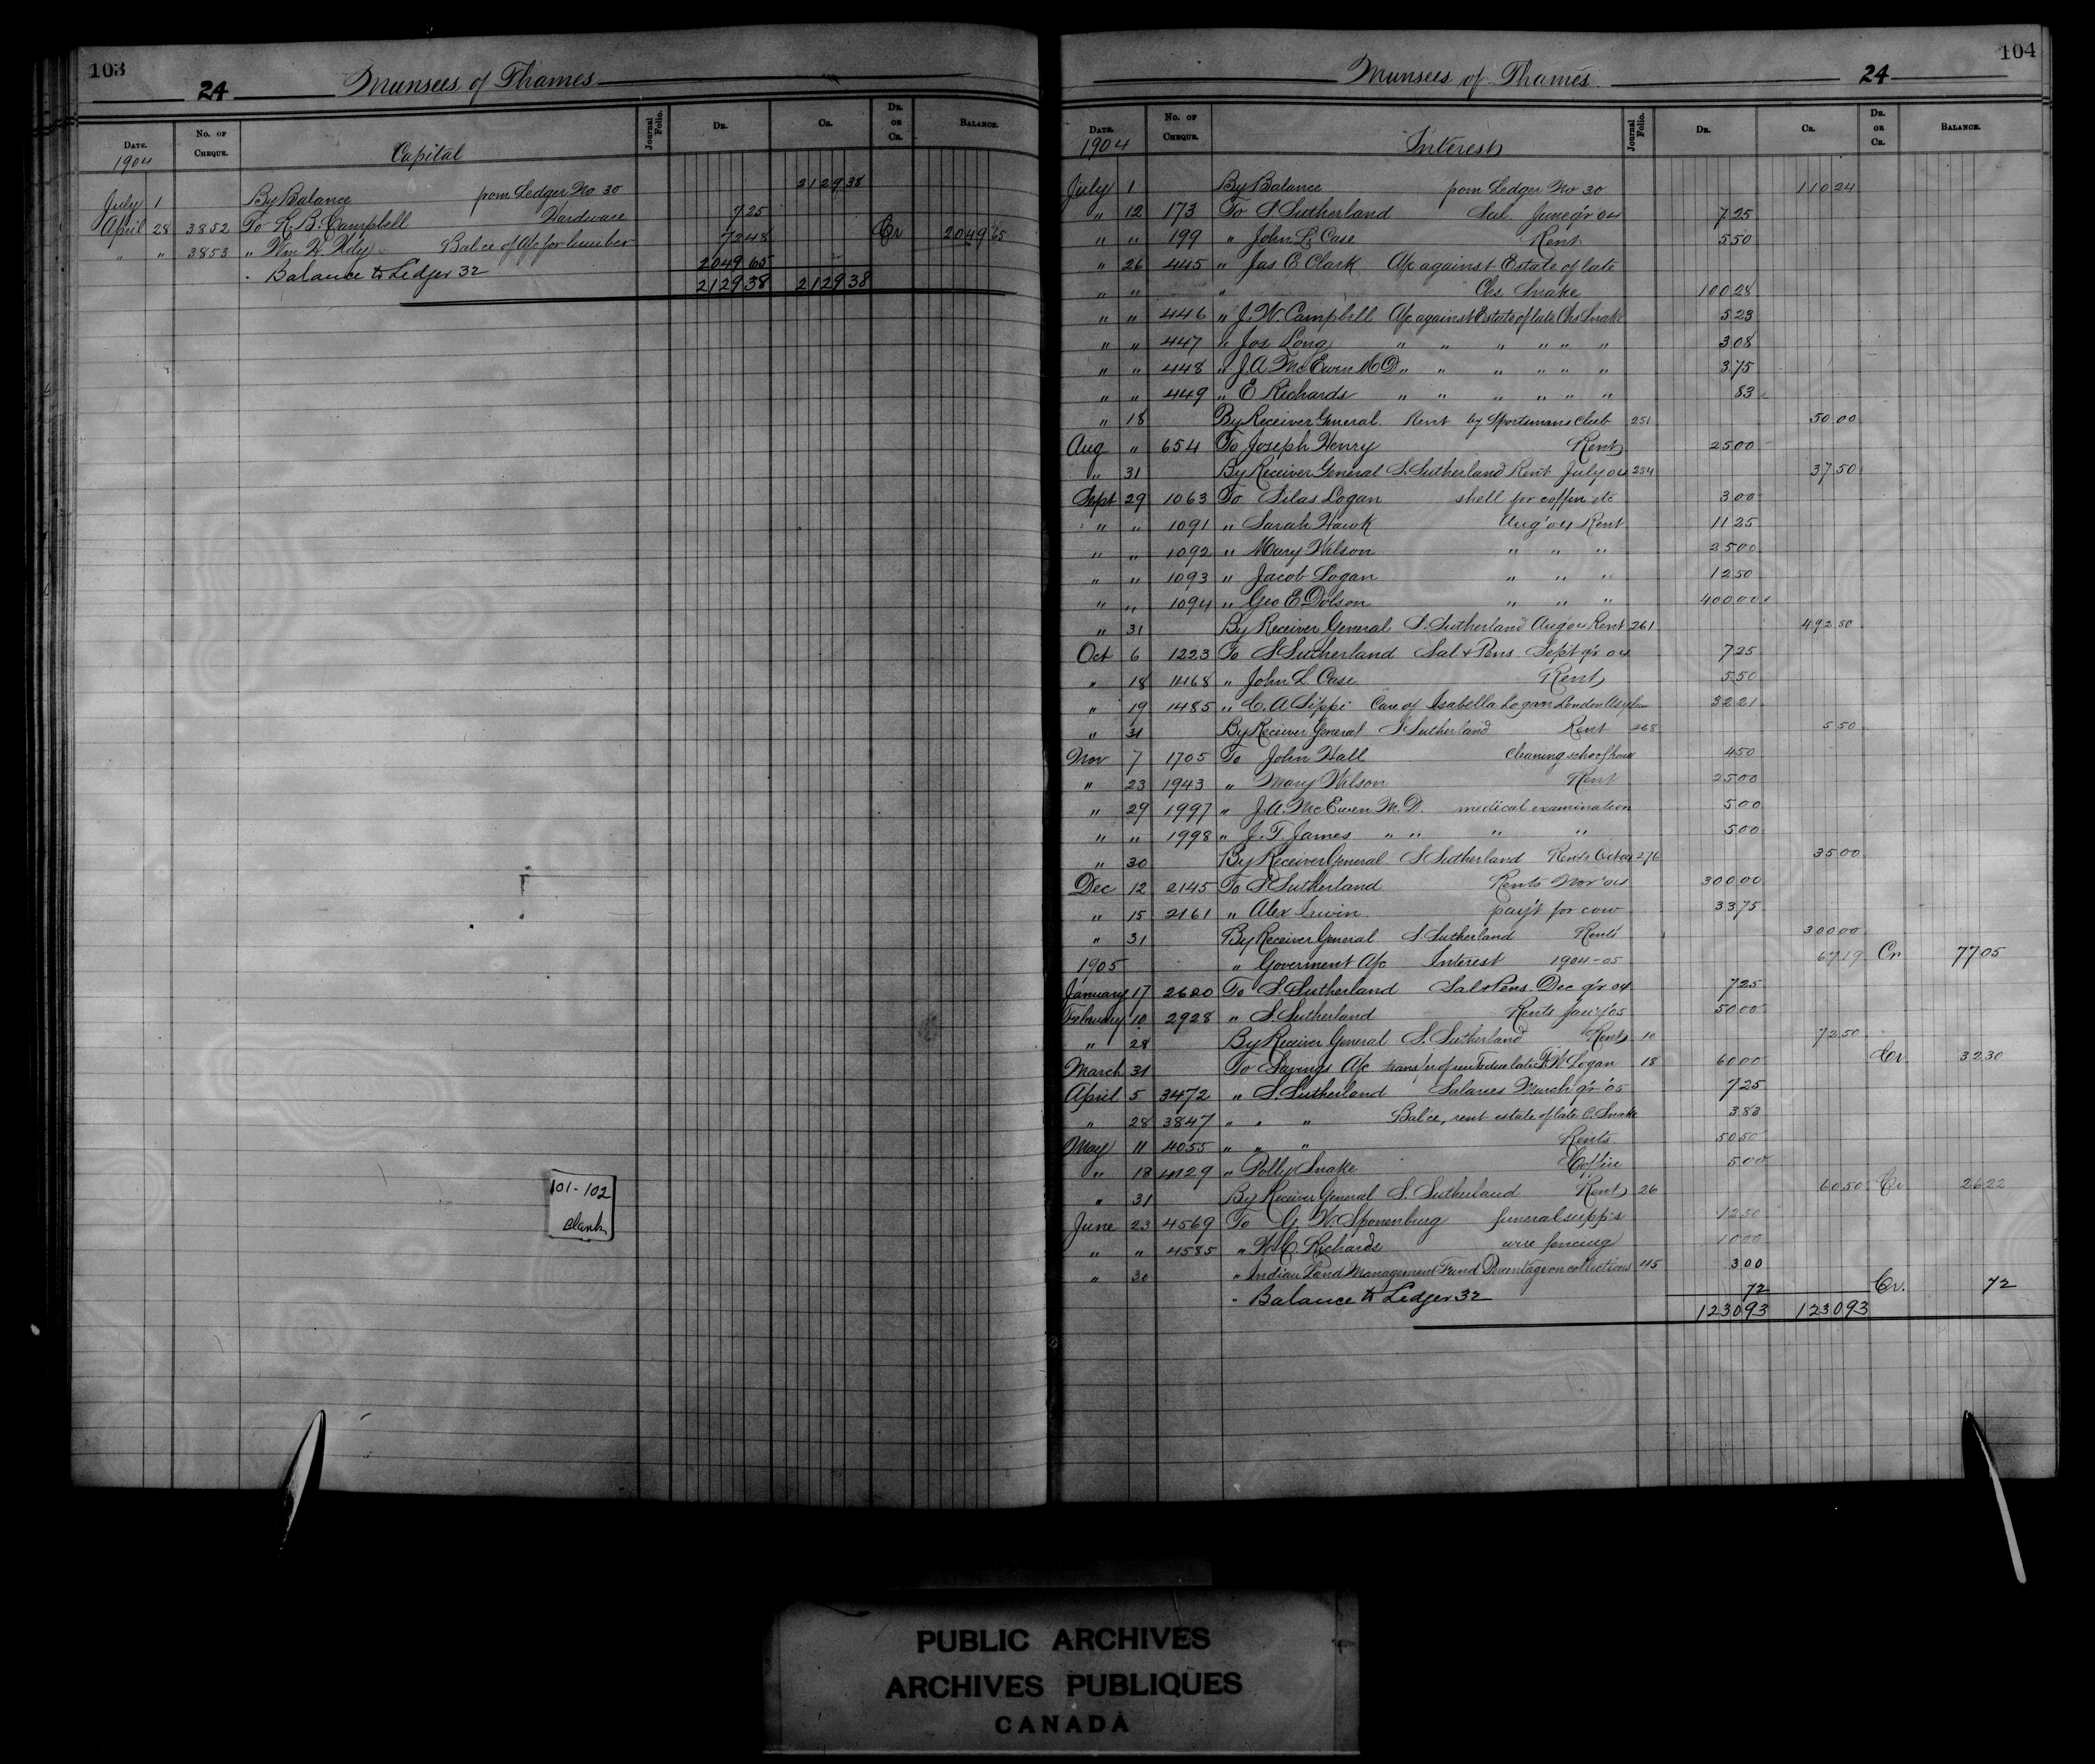 103
24 Munsees of Thames
Date. No. of Cheque. Journal Folio. Dr. Cr. Dr. or Cr. Balance.
1904 Capital
July 1 By Balance from Ledger No 30 2129 38
April 28 3852 To R. B. Campbell Hardware 7 25
" " 3853 " Wm H. Balce of A/c for lumber 72 48 Cr 2049 65
" Balance to Ledger 32 2049 65
2129 38 2129 38
101-102
blank
104
Munsees of Thames. 24
Date. No. of Cheque. Journal Folio. Dr. Cr. Dr. or Cr. Balance.
1904 Interest
July 1 By Balance from Ledger No 30 110 24
" 12 173 To S Sutherland Sal. June q'r 04 7 25
" " 199 " John L. Case Rent 5 50
" 26 445 " Jas C Clark A/c against Estate of late
" " " Chs Snake 100 28
" " 446 " J. W. Campbell A/c against Estate of late Chs Snake 5 23
" " 447 " Jos Long " " " " " " 3 08
" " 448 " J. A. McEwen M D " " " " " " 3 75
" " 449 " E Richards " " " " " " 83
" 18 By Receiver General. Rent by Sportsmans Club 251 50 00
Aug " 654 To Joseph Henry Rent 25 00
" 31 By Receiver General S. Sutherland Rent July 04 254 37 50
Sept 29 1063 To Silas Logan shell for coffin etc 3 00
" " 1091 " Sarah Hawk Aug' 04 Rent 11 25
" " 1092 " Mary Wilson " " " 25 00
" " 1093 " Jacob Logan " " " 12 50
" " 1094 " Geo E Dolson " " " 400 00
" 31 By Receiver General S. Sutherland Aug 04 Rent 261 492 50
Oct 6 1223 To S Sutherland Sal + Pens. Sept q'r 04 7 25
" 18 1468 " John L. Case Rent 5 50
" 19 1485 " C. A Sippi Care of Isabella Logan London Asylum 32 21
" 31 By Receiver General S Sutherland Rent 268 5 50
Nov 7 1705 To John Hall Cleaning schoolhouse 4 50
" 23 1943 " Mary Wilson Rent 25 00
" 29 1997 " J. A. McEwen M. D. medical examination 5 00
" " 1998 " J. T. James " " " " 5 00
" 30 By Receiver General S Sutherland Rents Oct 04 276 35 00
Dec 12 2145 To S Sutherland Rents Nov' 04 300 00
" 15 2161 " Alex Irwin pay't for cow 33 75
" 31 By Receiver General S. Sutherland Rents 300 00
1905 " Goverment A/c Interest 1904-05 67 19 Cr 77 05
January 17 2600 To S. Sutherland Sal + Pens. Dec q'r 04 7 25
February 10 2928 " S. Sutherland Rents Jan'y 05 50 00
" 28 By Receiver General S. Sutherland Rent 10 72 50
March 31 To Savings A/c late Logan 18 60 00 Cr. 32 30
April 5 3472 " S. Sutherland Salaries March q'r '05 7 25
" 28 3847 " " " Balce, rent estate of late C. Snake 3 83
May 11 4055 " " " Rents 50 50
" 18 4129 " Polly Snake Coffin 5 00
" 31 By Receiver General S. Sutherland Rent 26 60 50 Cr. 26 22
June 23 4569 To G. W. Sponenburg funeral supp's 12 50
" " 4585 " W. C. Richards wire fencing 10 00
" 30 " Indian Land Management Fund Percentage on collections 45 3 00
" Balance to Ledger 32 72 Cr. 72
1230 93 1230 93
PUBLIC ARCHIVES
ARCHIVES PUBLIQUES
CANADA